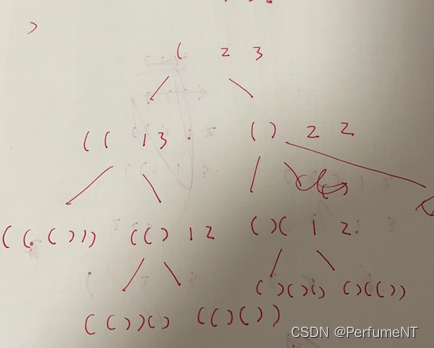 ( 2 3
( ( 1 3 ( ) 2 2
( ( ( ) ) ) ( ( ) 1 2 ( ) ( 1 2
( ) ( ) ( ) ( ) ( ( ) )
( ( ) ) ( ) ( ( ) ( ) )
CSDN @PerfumeNT